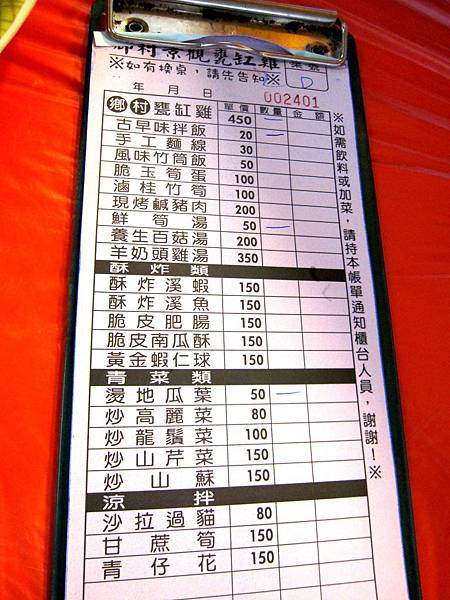 鄉村景觀甕缸雞
※如有換桌,請先告知※ D
年 月 日 002401
鄉村甕缸雞 單價 數量 金額
450
古早味拌飯 20 一
手工麵線 30
風味竹筒飯 50
脆玉筍蛋 100
滷桂竹筍 100
現烤鹹豬肉 200
鮮筍湯 50 一
養生百菇湯 200
羊奶頭雞湯 350
酥炸類
酥炸溪蝦 150
酥炸溪魚 150
脆皮肥腸 150
脆皮南瓜酥 150
黃金蝦仁球 150
青菜類
燙地瓜葉 50 一
炒高麗菜 80
炒龍鬚菜 100
炒山芹菜 150
炒山蘇 150
涼拌
沙拉過貓 80
甘蔗筍 150
青仔花 150
※如需飲料或加菜,請持本帳單通知櫃台人員,謝謝!※